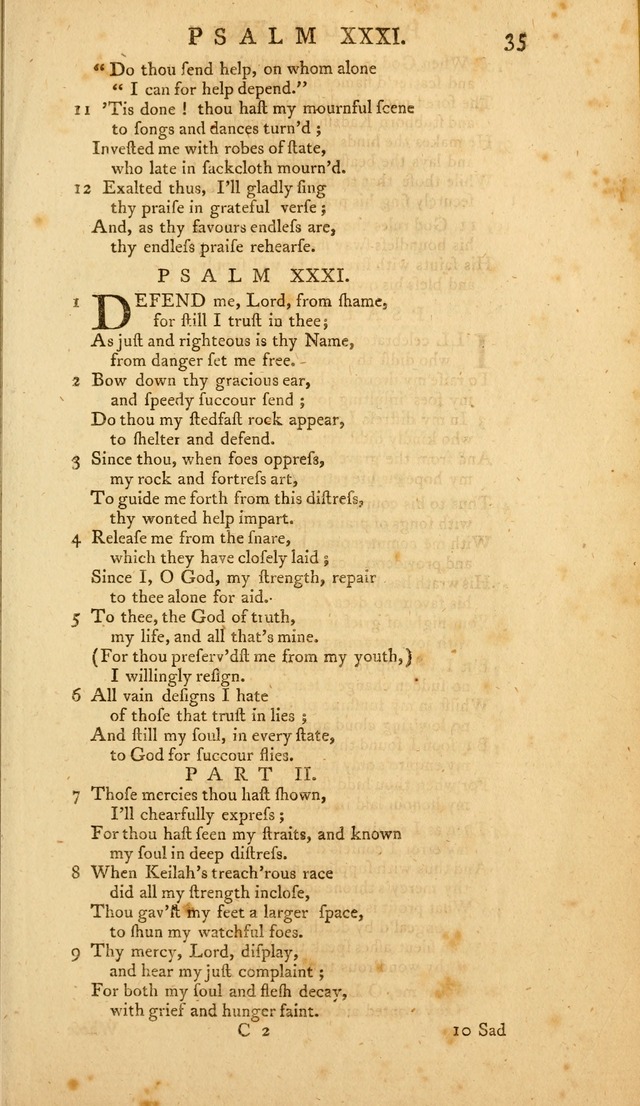 PSALM XXXI. 35
“ Do thou ſend help, on whom alone
“ I can for help depend.”
11 'Tis done ! thou haſt my mournful ſcene
to ſongs and dances turn'd ;
Inveſted me with robes of ſtate,
who late in ſackcloth mourn'd.
12 Exalted thus, I'll gladly ſing
thy praiſe in grateful verſe ;
And, as thy favours endleſs are,
thy endleſs praiſe rehearſe.
PSALM XXXI.
1 DEFEND me, Lord, from ſhame,
for ſtill I truſt in thee;
As juſt and righteous is thy Name,
from danger ſet me free.
2 Bow down thy gracious ear,
and ſpeedy ſuccour ſend ;
Do thou my ſtedfaſt rock appear,
to ſhelter and defend.
3 Since thou, when foes oppreſs,
my rock and fortreſs art,
To guide me forth from this diſtreſs,
thy wonted help impart.
4 Releaſe me from the ſnare,
which they have cloſely laid ;
Since I, O God, my ſtrength, repair
to thee alone for aid.
5 To thee, the God of truth,
my life, and all that's mine.
(For thou preſerv'dſt me from my youth,)
I willingly reſign.
6 All vain deſigns I hate
of thoſe that truſt in lies ;
And ſtill my ſoul, in every ſtate,
to God for ſuccour flies.
PART II.
7 Thoſe mercies thou haſt ſhown,
I'll chearfully expreſs ;
For thou haſt ſeen my ſtraits, and known
my ſoul in deep diſtreſs.
8 When Keilah's treach'rous race
did all my ſtrength incloſe,
Thou gav'ſt my feet a larger ſpace,
to ſhun my watchful foes.
9 Thy mercy, Lord, diſplay,
and hear my juſt complaint ;
For both my ſoul and fleſh decay,
with grief and hunger faint.
C 2 10 Sad